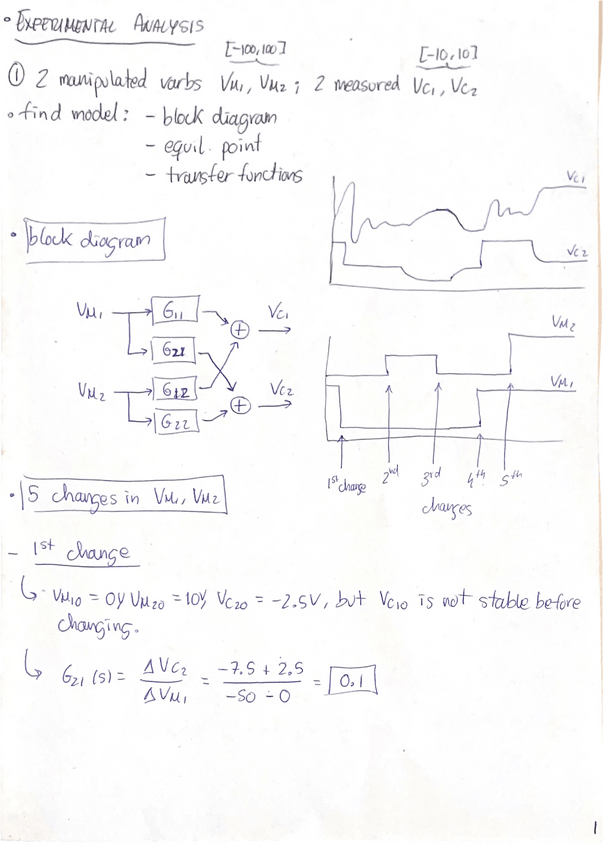 • EXPERIMENTAL ANALYSIS
[-100,100] [-10,10]
① 2 manipulated varbs VM1, VM2 ; 2 measured VC1, VC2
• find model: - block diagram
- equil. point
- transfer functions
VC1
VC2
• block diagram
VM1 G11 + VC1
G21
VM2 G12 + VC2
G22
VM2
VM1
1st change 2nd 3rd 4th 5th
changes
• 5 changes in VM1, VM2
- 1st change
↳ VM10 = 0V, VM20 = 10V, VC20 = -2.5V, but VC10 is not stable before
changing.
↳ G21(s) = ΔVC2 / ΔVM1 = -7.5 + 2.5 / -50 - 0 = 0.1
1